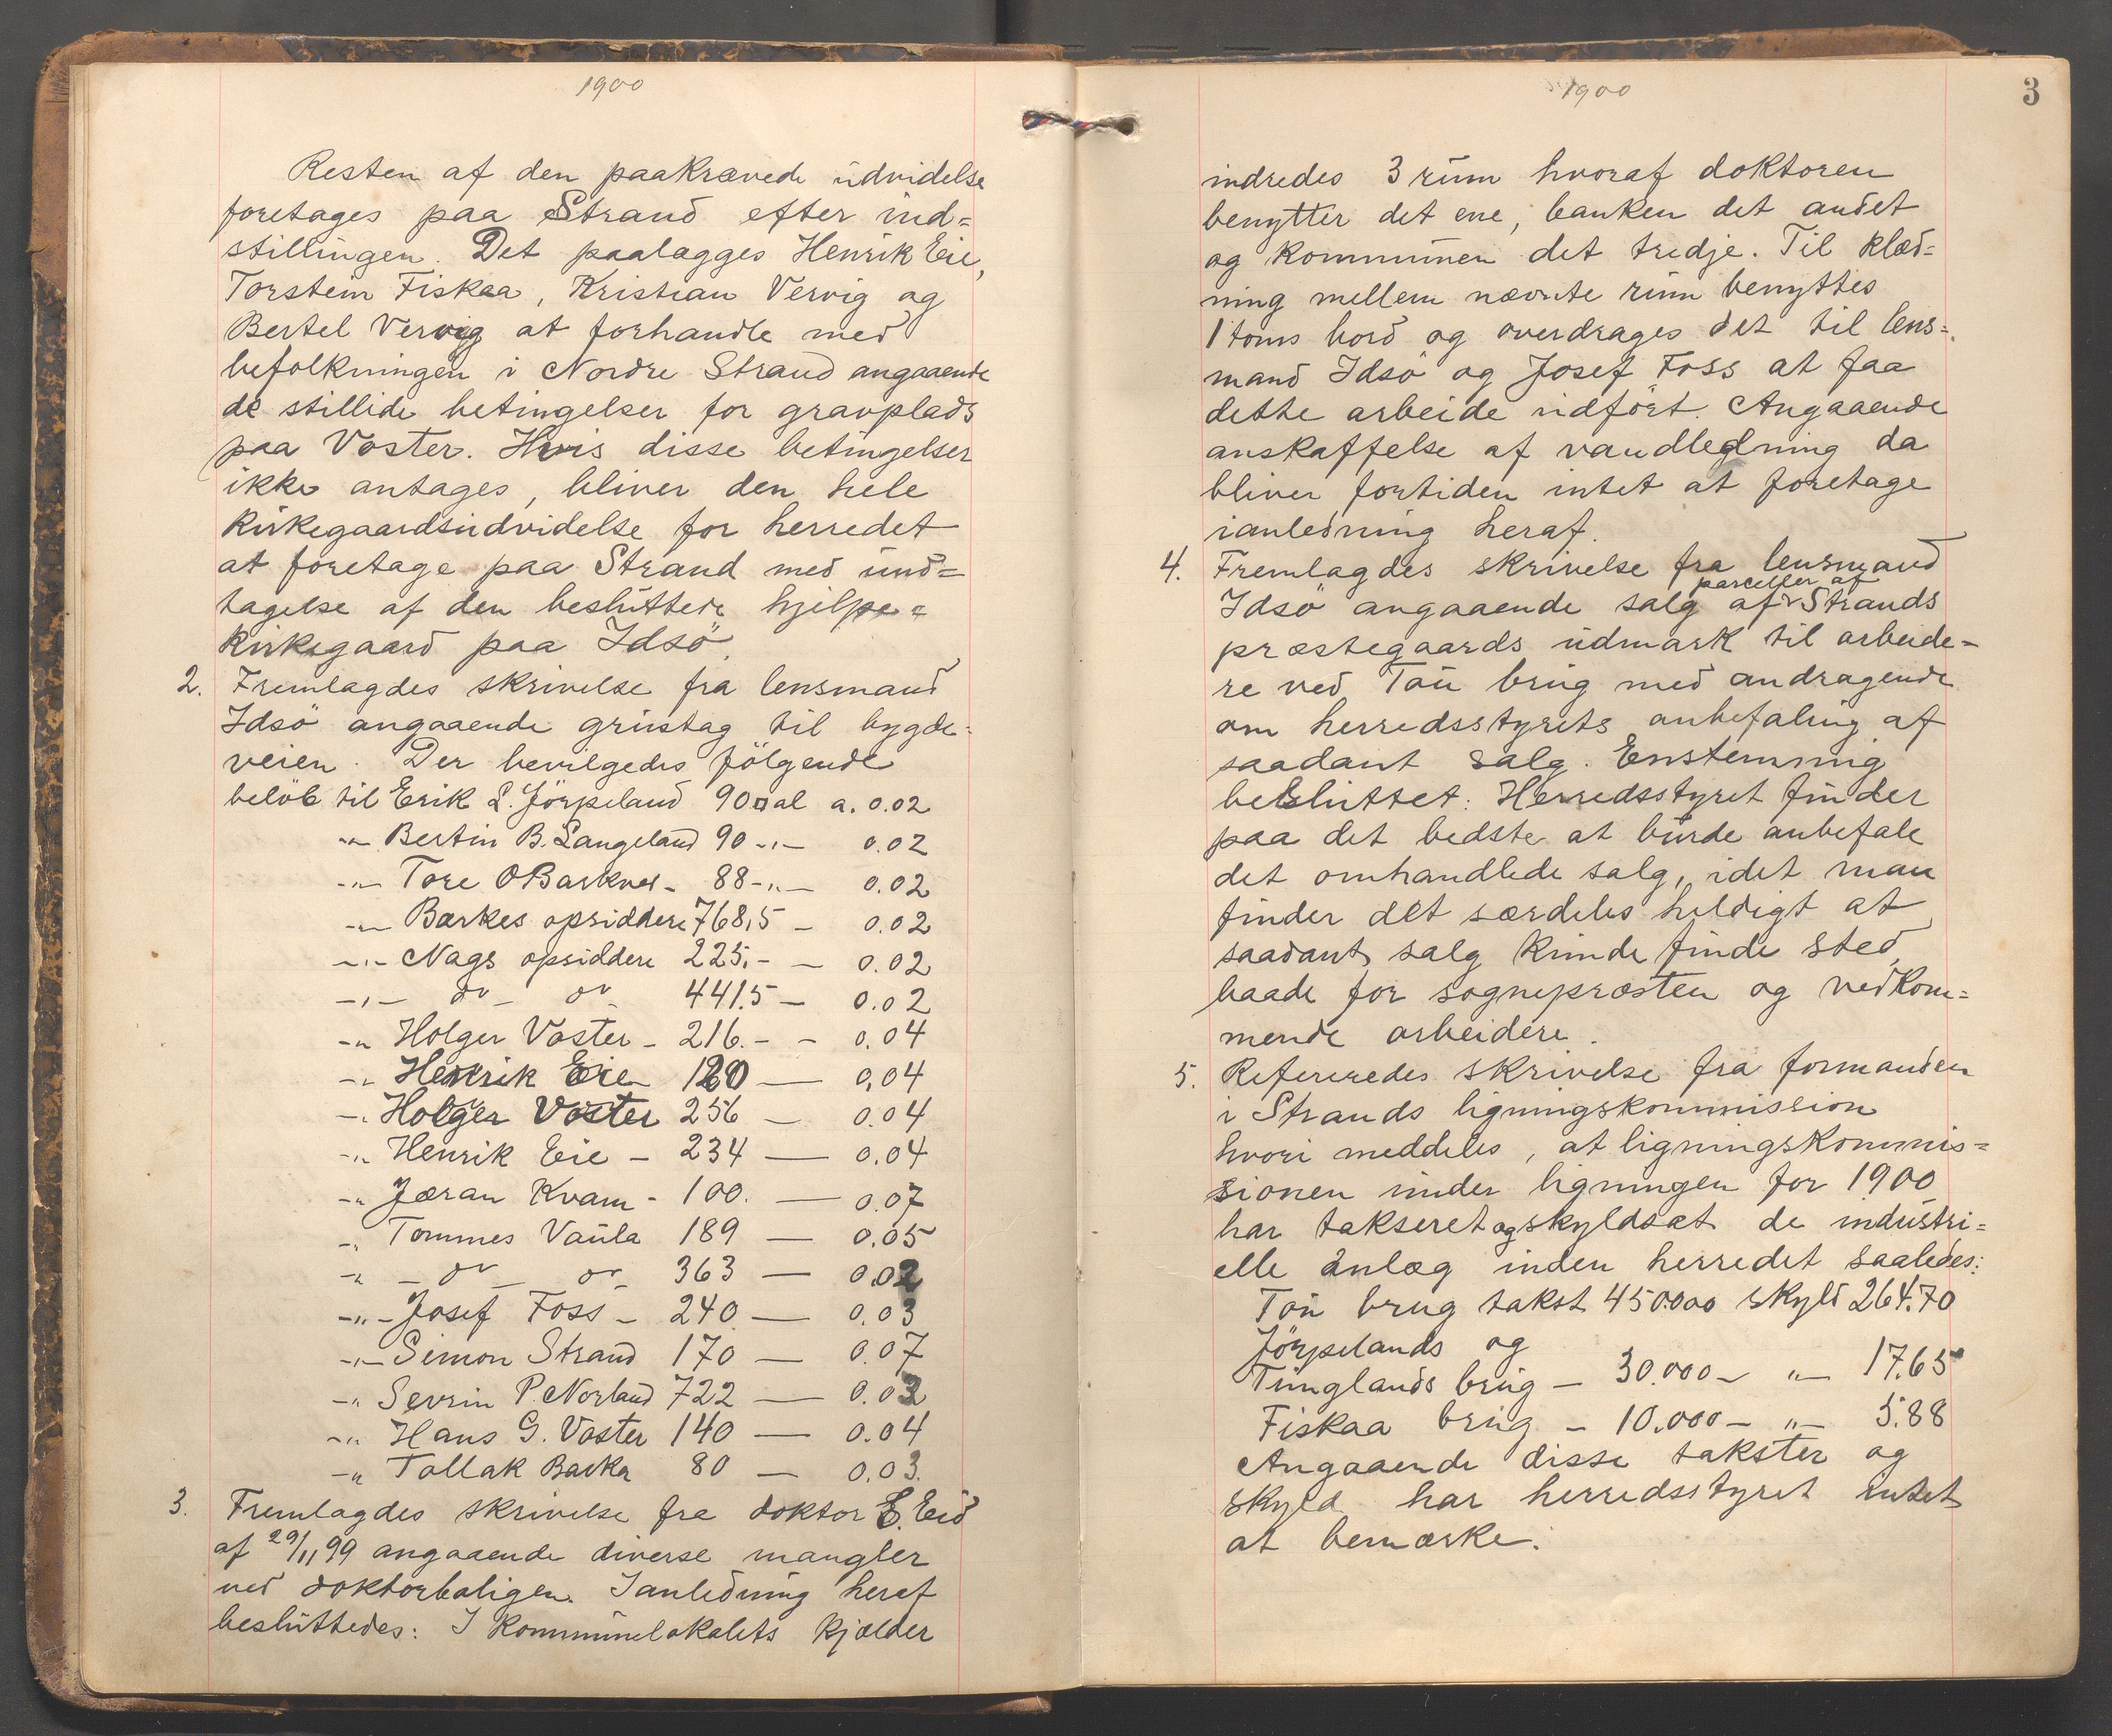 1900
Resten af den paakrævede udvidelse
foretages paa Strand efter ind=
stillingen. Det paalægges Henrik Eie,
Torstein Fiskaa, Kristian Vervig og
Bertel Vervig at forhandle med
befolkningen i Nordre Strand angaaende
de stillide betingelser for gravplads
paa Voster. Hvis disse betingelser
ikke antages, bliver den hele
kirkegaardsudvidelse for herredet
at foretage paa Strand med und=
tagelse af den besluttede hjelpe=
kirkegaard paa Idsö.
2. Fremlagdes skrivelse fra lensmand
Idsö angaaende grustag til bygde=
veien. Der bevilgedes fölgende
belöb til Erik L. Jörpeland 90 □al a. 0.02
-"- Bertin B. Langeland 90 -"- 0.02
-"- Tore O Barknes - 88 -"- 0.02
-"- Barkes opsiddere 768,5 - 0.02
-"- Nags opsiddere 225,- - 0.02
-"- do - do - 441.5 - 0.02
-"- Holger Voster - 216. - - 0.04
-"- Henrik Eie 120 - 0,04
-"- Holger Voster 256 - 0.04
-"- Henrik Eie - 234 - 0.04
-"- Jæran Kvam - 100. - 0.07
-"- Tommes Vaula 189 - 0.05
-"- do - do - 363 - 0.02
-"- Josef Foss - 240 - 0.03
-"- Simon Strand 170 - 0.07
-"- Sevrin P. Norland 722 - 0.03
-"- Hans G. Voster 140 - 0.04
-"- Tollak Barka 80 - 0.03.
3. Fremlagdes skrivelse fra doktor E. Eid
af 29/11 99 angaaende diverse mangler
ved doktorboligen. Ianledning heraf
besluttedes: I kommunelokalets kjælder
1900
3
indredes 3 rum hvoraf doktoren
benytter det ene, banken det andet
og kommunen det tredje. Til klæd=
ning mellem nævnte rum benyttes
1 toms bord og overdrages det til lens=
mand Idsö og Josef Foss at faa
dette arbeide udfört. Angaaende
anskaffelse af vandledning da
bliver fortiden intet at foretage
ianledning heraf.
4. Fremlagdes skrivelse fra lensmand
Idsö angaaende salg af parceller af Strands
præstegaards udmark til arbeide=
re ved Tou brug med andragende
om herredsstyrets anbefaling af
saadant salg. Enstemmig
besluttet: Herredsstyret finder
paa det bedste at burde anbefale
det omhandlede salg, idet man
finder det særdeles heldigt at
saadant salg kunde finde sted,
baade for sognepræsten og vedkom=
mende arbeidere.
5. Refereredes skrivelse fra formanden
i Strands ligningskommission
hvori meddeles, at ligningskommis=
sionen under ligningen for 1900
har takseret og skyldsat de industri=
elle anlæg inden herredet saaledes:
Tou brug takst 450.000 skyld 264.70
Jörpelands og
Tunglands brug - 30.000 - " - 17.65
Fiskaa brug - 10.000 - " - 5.88
Angaaende disse takster og
skyld har herredsstyret intet
at bemærke.